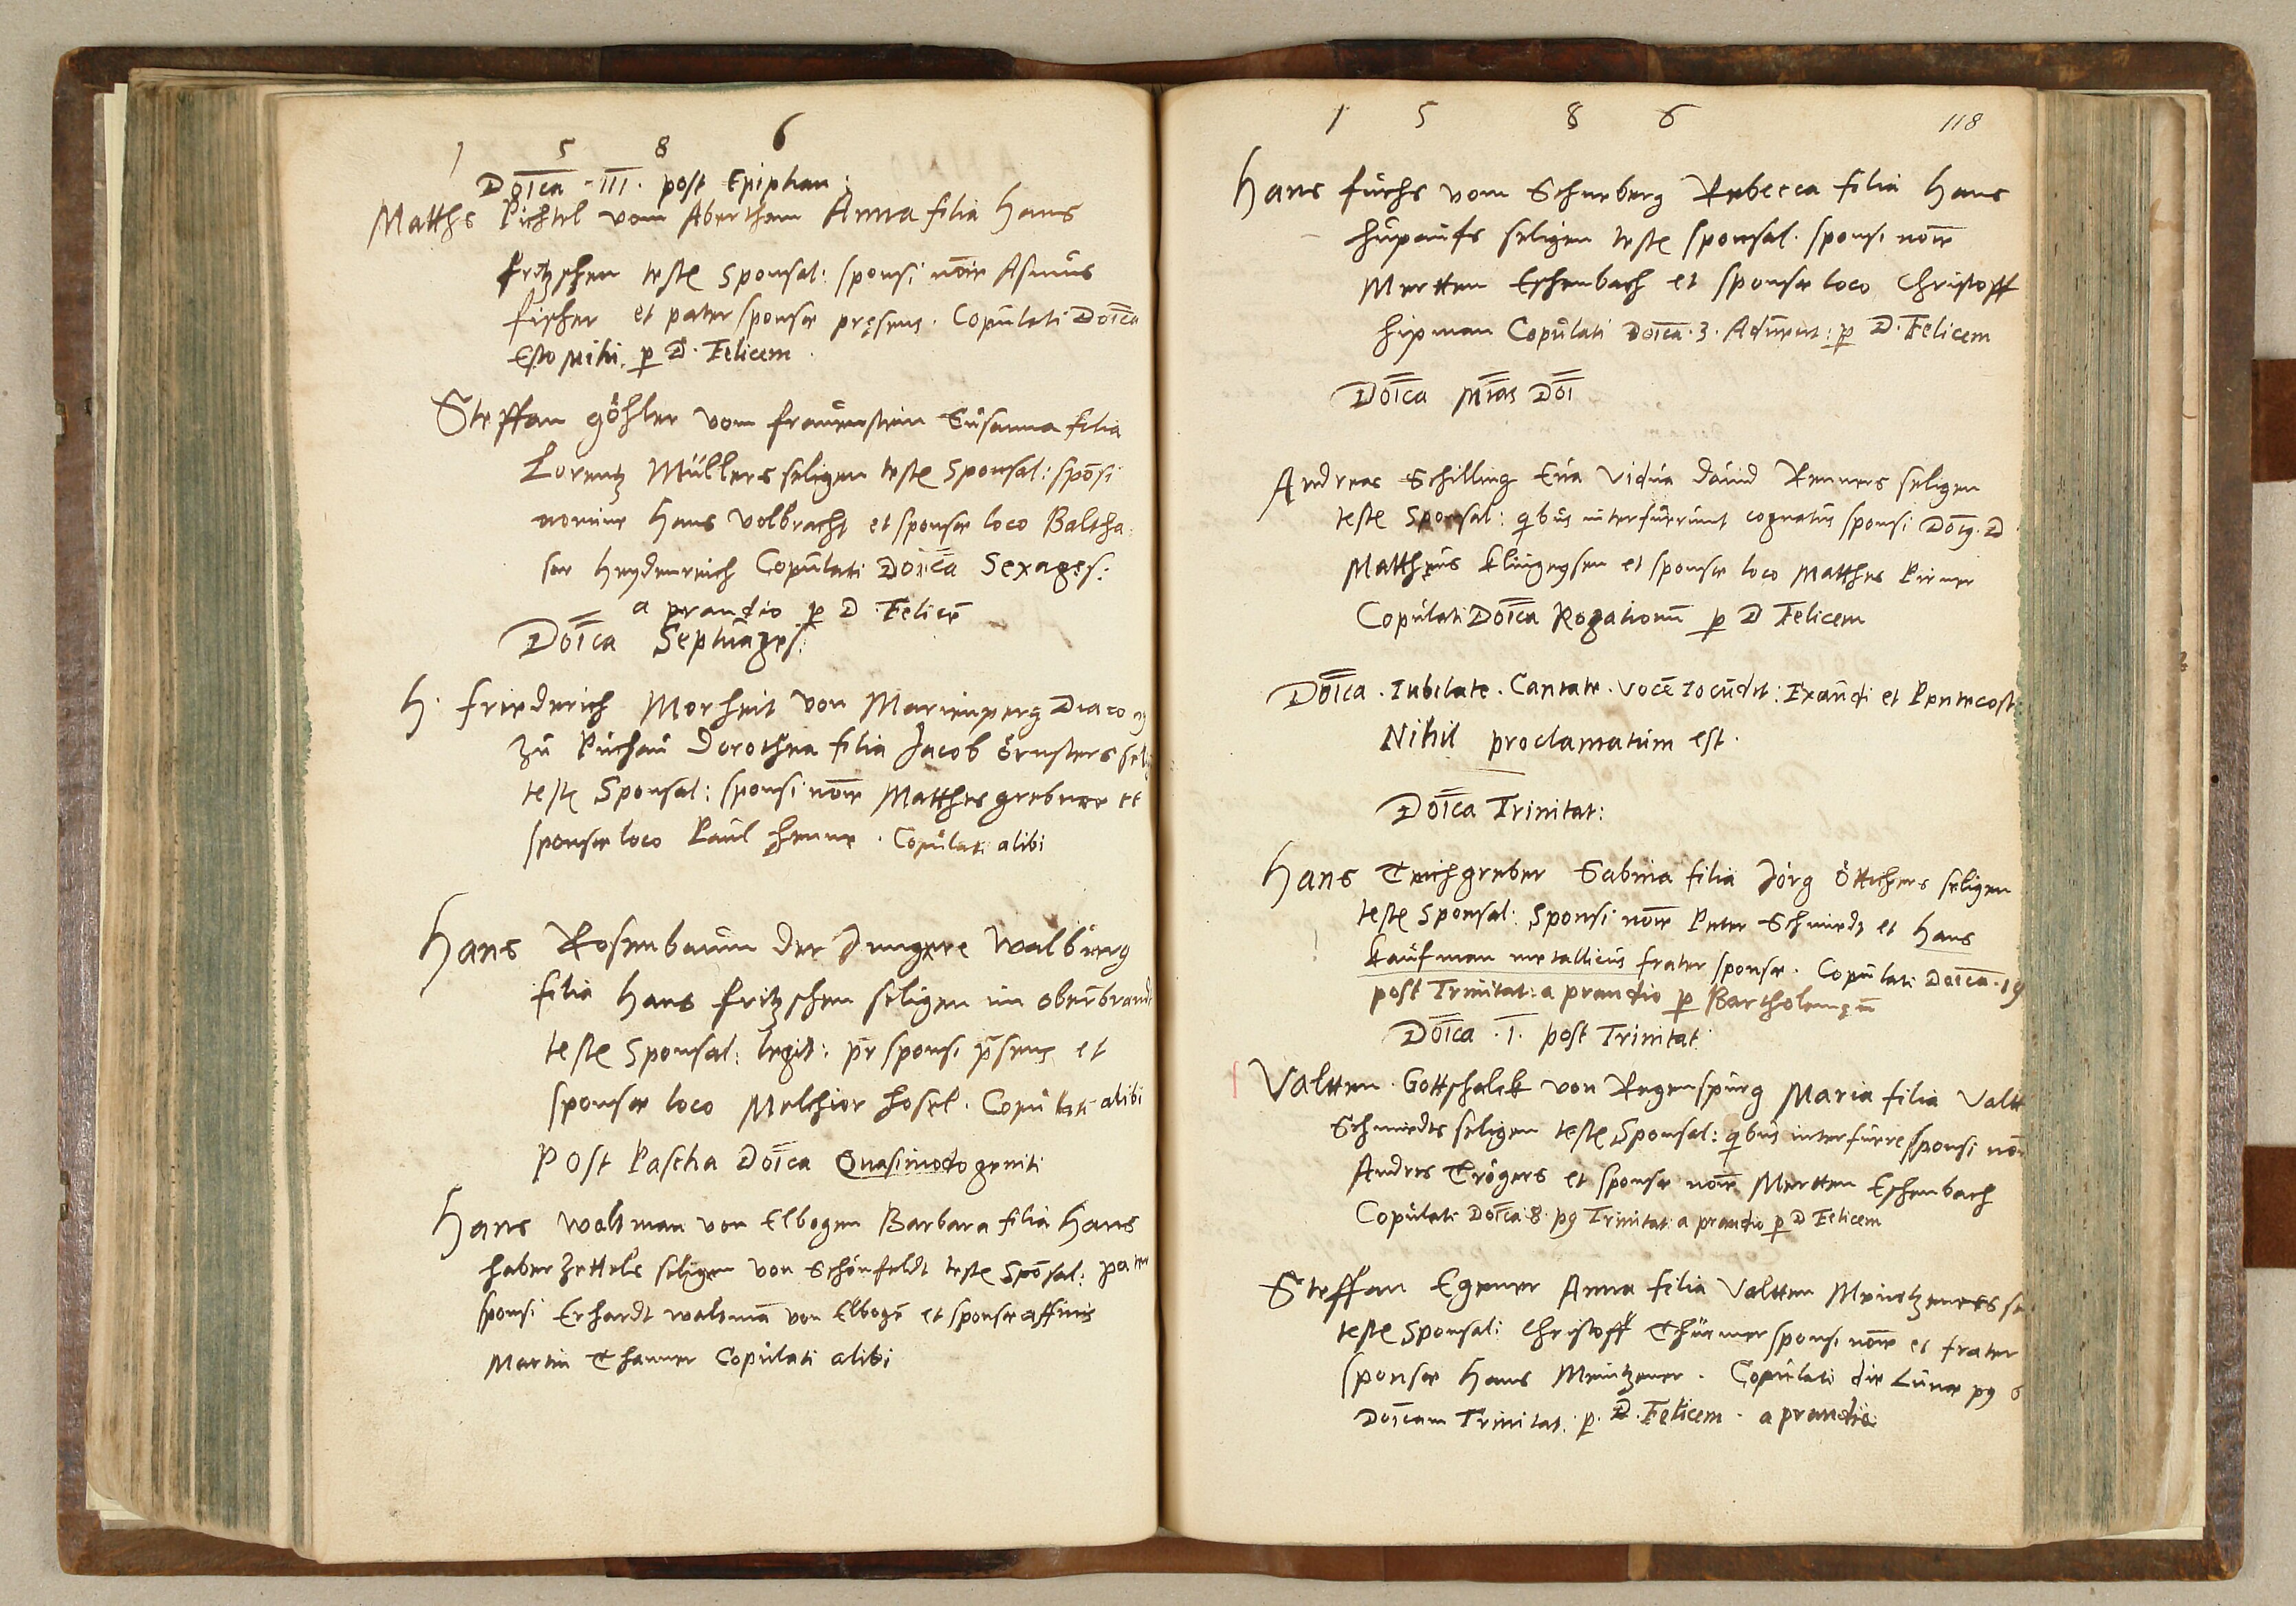 1 5 8 6
Doīca · III · post Epiphan:
Matths Pichtel vom Abertham Anna filia Hans
fritzschen teste Sponsal: sponsi nōie Asmus
fischer et pater sponsæ pręsens. Copulati Doīca
Esto Mihi. p D. Felicem.
Steffan göhler vom frauenstein Susanna filia
Lorentz Müllers seligen teste Sponsal: spōsi
nomine Hans Volbracht et sponsæ loco Baltha
sar Heydenreich Copulati Doīca Sexages:
a prandio p D. Felicē
Doīca Septuages:
H. friederich Morheit von Marienperg Diacon9
zu Puchau Dorothea filia Jacob örnsters selig
teste Sponsal: sponsi nōie Matthes grebner et
sponsæ loco Paul Henne. Copulati alibi
Hans Rosenbaum der Jungere Walburg
filia Hans fritzschen seligen im oberbrandt
teste Sponsal: legit: pr sponsi p̄sens et
sponsæ loco Melchior Hosel. Copulati alibi
Post Pascha Doīca Quasimodogeniti
Hans Waltman von Elbogen Barbara filia Hans
Haberzettels seligen von Schönfeldt teste Spōsal: pater
sponsi Erhardt Waltmā von Elbogē et sponsæ affinis
Martin Thanner Copulati alibi
1 5 8 6 118
Hans fuchs vom Schneberg Rebecca filia Hans
seligen teste sponsal. sponsi nōie
Mertten Eschenbach et sponsæ loco Christoff
Hipman Copulati Doīca. 3. Aduent: p D. Felicem
Doīca Mīas Doī
Andreas Schilling Eua Vidua Dauid Renners seligen
teste Sponsal: qibus interfuerunt cognatus sponsi D
Mattheus Klingeysen et sponsæ loco Matthes Pirner
Copulati Doīca Rogationū p D Felicem
Doīca. Iubilate. Cantate. Vocē Iocūdit: Exaudi et Pentecost
Nihil proclamatum est.
Doīca Trinitat:
Hans Teichgreber Sabina filia Jörg öttichers seligen
teste Sponsal: Sponsi nōie Peter Schmiedt et Hans
Kaufman metallicus frater sponsæ. Copulati Doīca. 19
post Trinitat: a prandio p Bartholemęū
Doīca. I. post Trinitat:
Valtten. Gottschalck von Regenspurg Maria filia Valtt
Schmiedts seligen teste Sponsal: qibus interfuere sponsi nōi
Andres Trögers et sponsæ nōie Mertten Eschenbach
Copulati Doīca 8. p9 Trinitat: a prandio p D Felicem
Steffan Egener Anna filia Valtten Meintzeners se
teste Sponsal: Christoff Thürmer sponsi nōie et frater
sponsæ Hans Meintzener. Copulati die Lunæ p9 6
Doīcam Trinitat: p. D. Felicem. a prandio